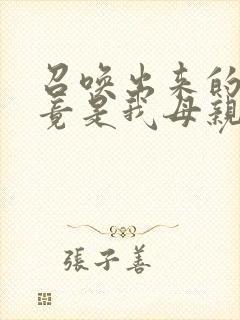 召唤出来的
竟是我母親
張子善